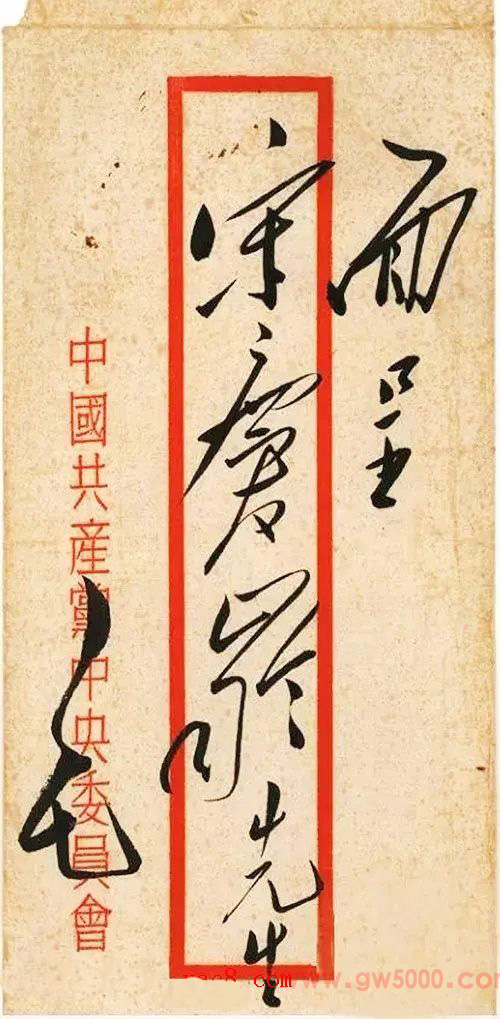 面呈
宋慶齡先生
中國共産黨中央委員會
毛
www.gw5000.com